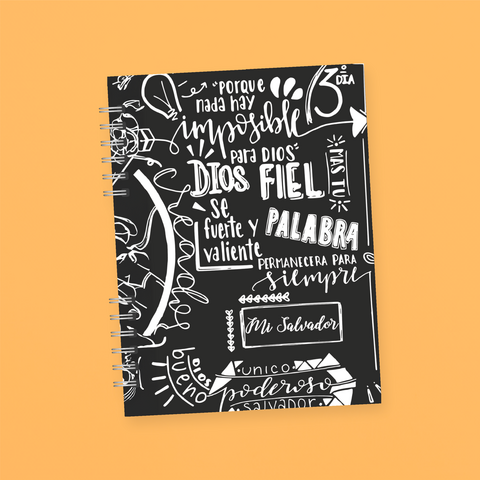 "porque
nada hay
imposible
para DIOS"
3º
DÍA
DIOS FIEL
MAS TU
PALABRA
PERMANECERA PARA
siempre
se
fuerte y
valiente
Mi Salvador
DIOS
bueno
UNICO
poderoso
SALVADOR